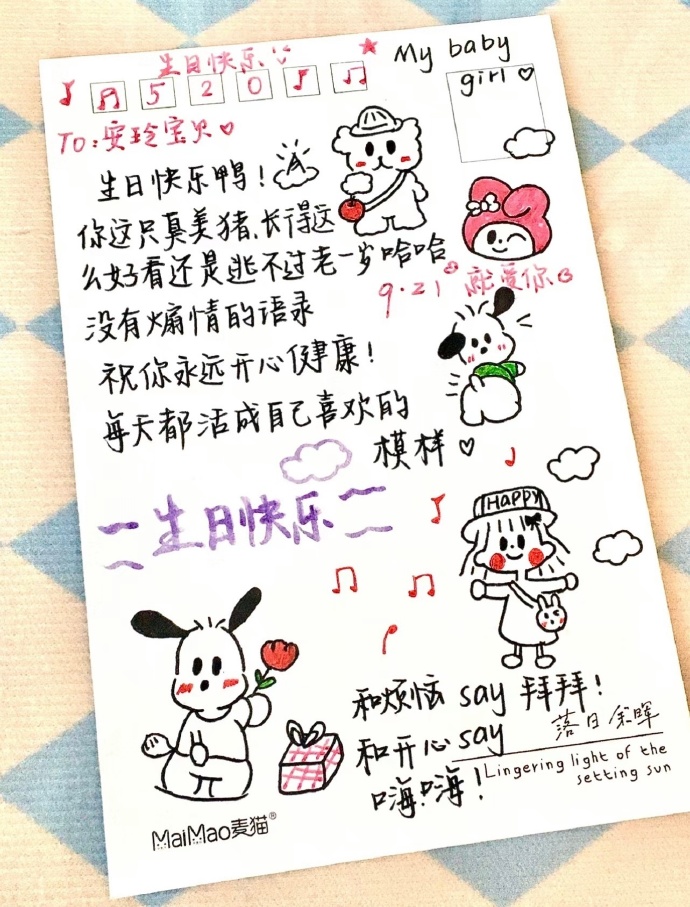 生日快乐
My baby
girl
5 2 0
TO:安玲宝贝
生日快乐鸭！
你这只真美猪、长得这
么好看还是逃不过老一岁哈哈
9.21 就爱你
没有煽情的语录
祝你永远开心健康！
每天都活成自己喜欢的
模样
生日快乐
HAPPY
和烦恼 say 拜拜！
和开心 say
嗨！嗨！
落日余晖
Lingering light of the
setting sun
MaiMao麦猫®